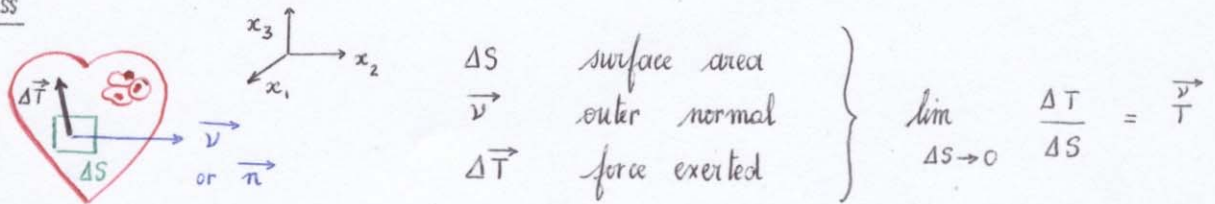 ss
x₃
x₂
x₁
ΔT⃗
ΔS
ν⃗
or n⃗
ΔS surface area
ν⃗ outer normal
ΔT⃗ force exerted
lim ΔS→0 ΔT / ΔS = ν⃗ / T